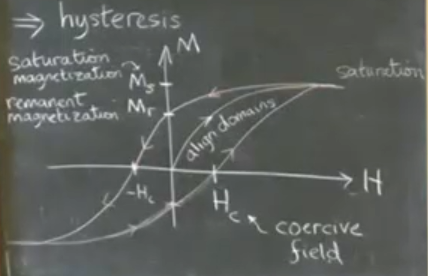 ⇒ hysteresis
M
saturation
magnetization
Ms
remanent
magnetization
Mr
saturation
align domains
-Hc
Hc
H
coercive
field